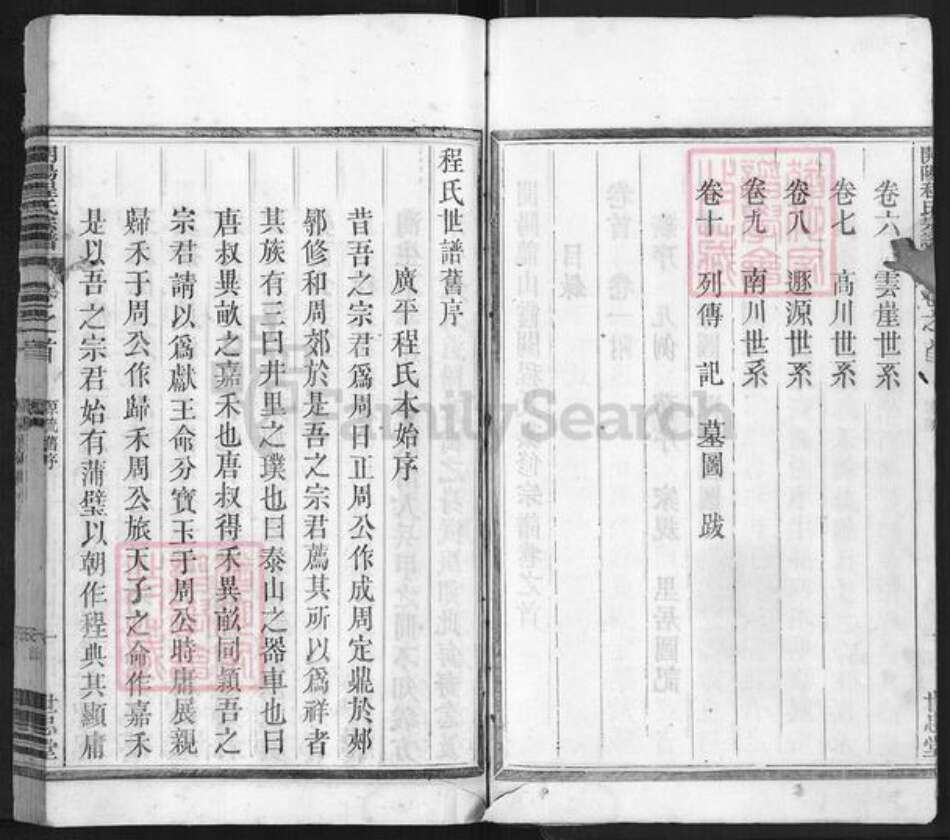 卷六 雲崖世系
卷七 高川世系
卷八 遯源世系
卷九 南川世系
卷十 列傳記 墓圖 跋
世忠堂
程氏世譜舊序
廣平程氏本始序
昔吾之宗君爲周日正周公作成周定鼎於郟
鄏修和周郊於是吾之宗君薦其所以爲祥者
其族有三曰井里之璞也曰泰山之器車也曰
唐叔異畝之嘉禾也唐叔得禾異畝同穎吾之
宗君請以爲獻王命分寶玉于周公時庸展親
歸禾于周公作歸禾周公旅天子之命作嘉禾
是以吾之宗君始有蒲璧以朝作程典其顯庸
世忠堂
FamilySearch